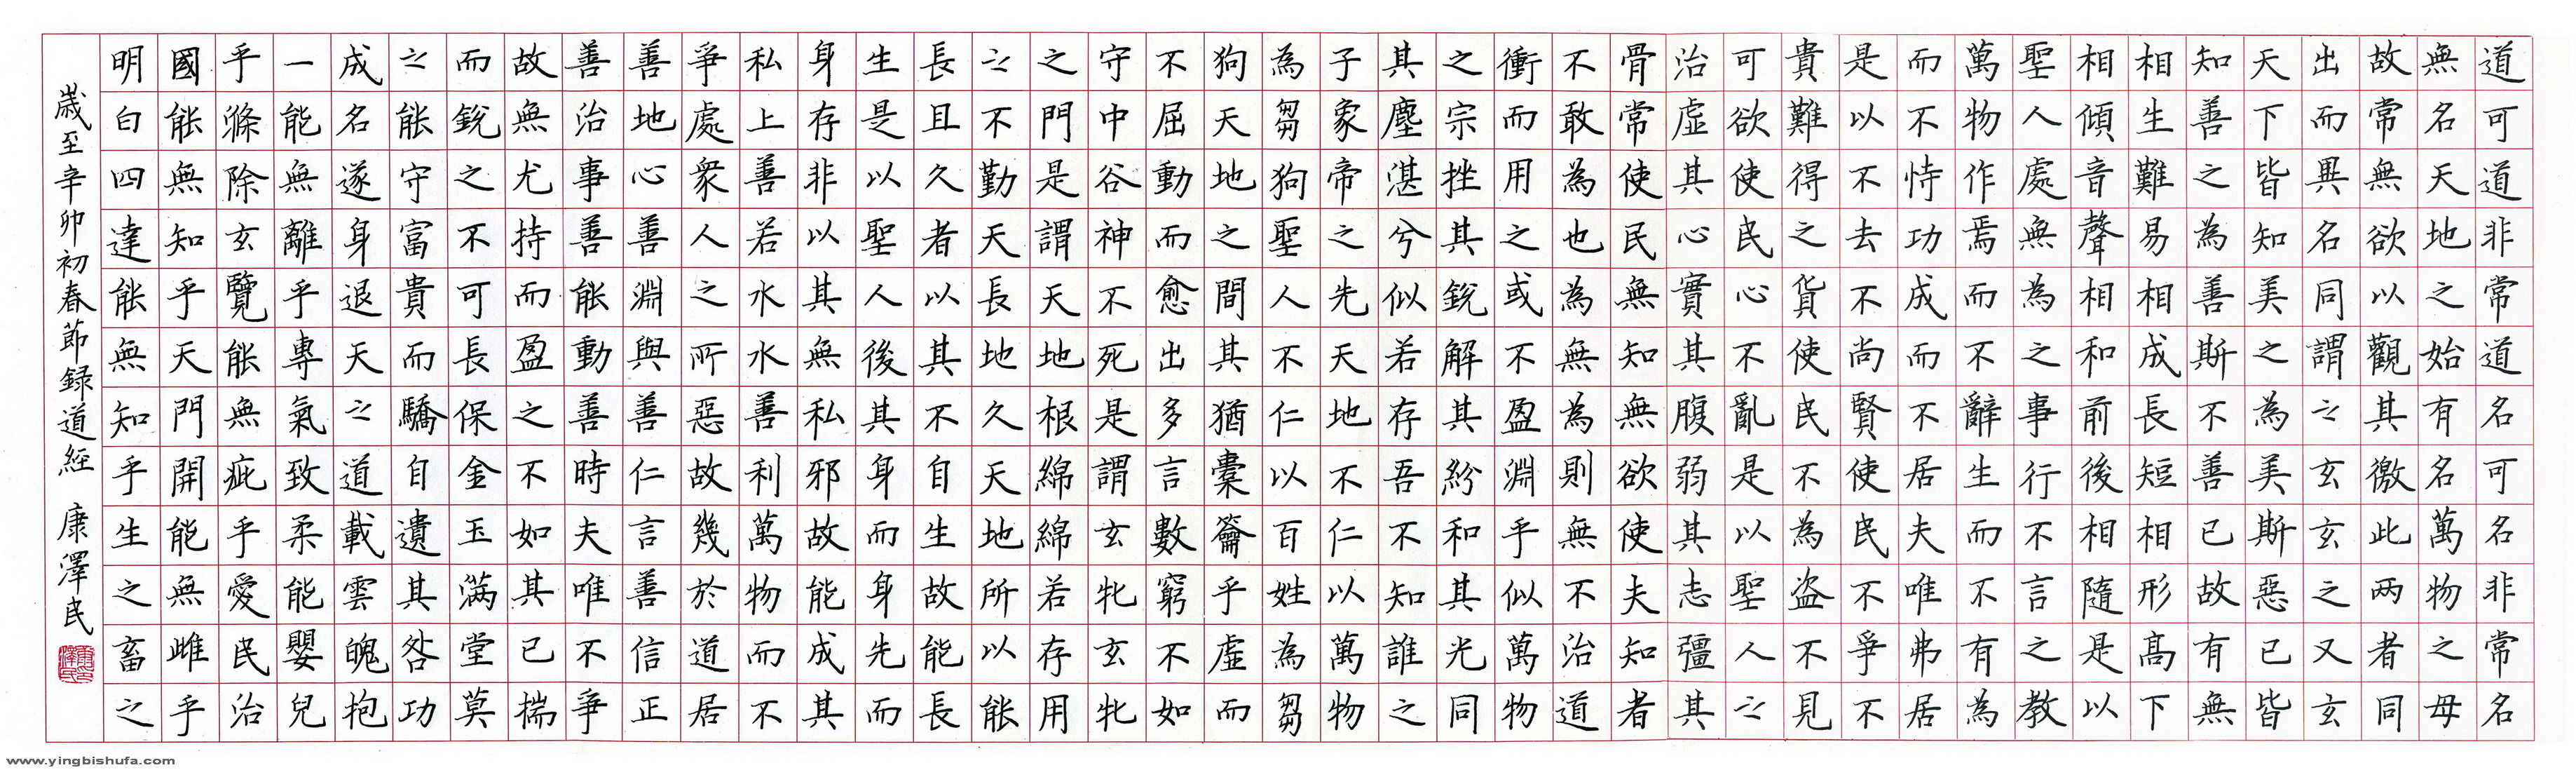 道可道非常道名可名非常名
無名天地之始有名萬物之母
故常無欲以觀其徼此两者同
出而異名同謂之玄玄之又玄
天下皆知美之為美斯惡已皆
知善之為善斯不善已故有無
相生難易相成長短相形高下
相傾音聲相和前後相隨是以
聖人處無為之事行不言之教
萬物作焉而不辭生而不有為
而不恃功成而不居夫唯弗居
是以不去不尚賢使民不爭不
貴難得之貨使民不為盗不見
可欲使民心不亂是以聖人之
治虛其心實其腹弱其志彊其
骨常使民無知無欲使夫知者
不敢為也為無為則無不治道
衝而用之或不盈淵乎似萬物
之宗挫其銳解其紛和其光同
其塵湛兮似若存吾不知誰之
子象帝之先天地不仁以萬物
為芻狗聖人不仁以百姓為芻
狗天地之間其猶橐籥乎虛而
不屈動而愈出多言數窮不如
守中谷神不死是謂玄牝玄牝
之門是謂天地根綿綿若存用
之不勤天長地久天地所以能
長且久者以其不自生故能長
生是以聖人後其身而身先而
身存非以其無私邪故能成其
私上善若水水善利萬物而不
爭處衆人之所惡故幾於道居
善地心善淵與善仁言善信正
善治事善能動善時夫唯不爭
故無尤持而盈之不如其已揣
而銳之不可長保金玉滿堂莫
之能守富貴而驕自遺其咎功
成名遂身退天之道載雲魄抱
一能無離乎專氣致柔能嬰兒
乎滌除玄覽能無疵乎愛民治
國能無知乎天門開能無雌乎
明白四達能無知乎生之畜之
歲至辛卯初春節録道經 康澤民
www.yingbishufa.com